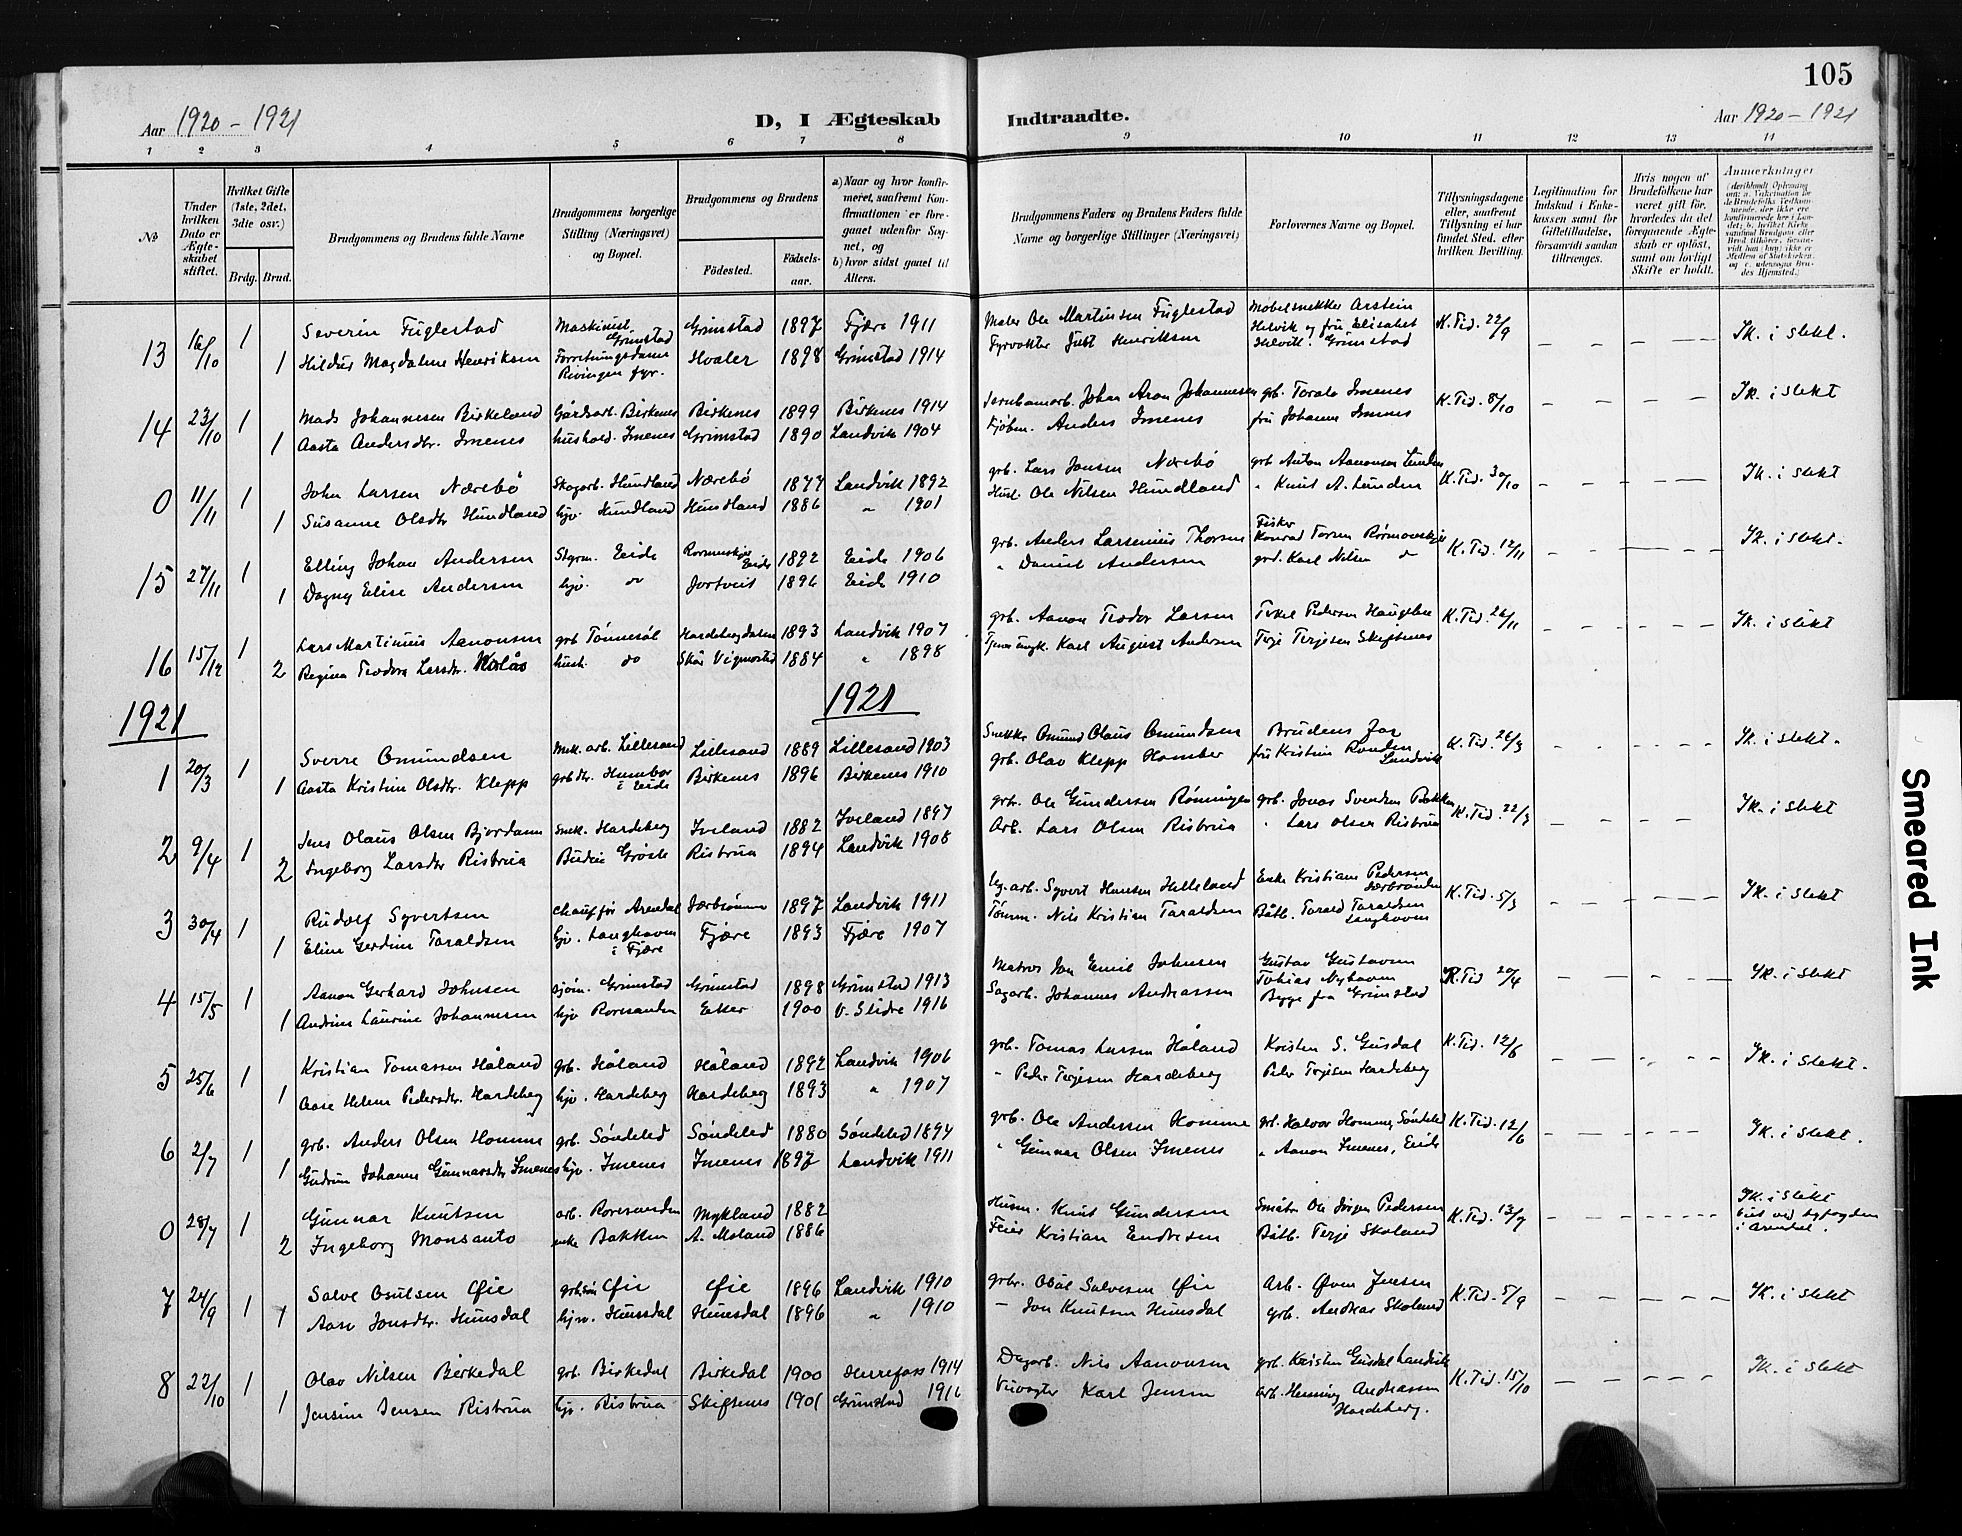 105
Aar 1920 - 1921
D, I Ægteskab Indtraadte.
Aar 1920 - 1921
1 2 3 4 5 6 7 8 9 10 11 12 13 14
No
Under hvilken Dato er Ægteskabet stiftet.
Hvilket Gifte (1ste, 2det, 3dte osv.)
Brdg. Brud.
Brudgommens og Brudens fulde Navne
Brudgommens borgerlige Stilling (Næringsvei) og Bopæl.
Brudgommens og Brudens
Födested. Födselsaar.
a) Naar og hvor konfirmeret, saafremt Konfirmationen er foregaaet udenfor Sognet, og
b) hvor sidst gaaet til Alters.
Brudgommens Faders og Brudens Faders fulde Navne og borgerlige Stillinger (Næringsvei)
Forlovernes Navne og Bopæl.
Tillysningsdagene eller, saafremt Tillysning ei har fundet Sted, efter hvilken Bevilling.
Legitimation for Indskud i Enkekassen samt for Giftetilladelse, forsaavidt saadan tiltrænges.
Hvis nogen af Brudefolkene har været gift för, hvorledes da det foregaaende Ægteskab er oplöst, samt om lovligt Skifte er holdt.
Anmerkninger
13 16/10 1 Severin Fuglestad Maskinist Grimstad Grimstad 1897 Fjære 1911 Maler Ole Martinsen Fuglestad Møbelsnekker Arstein K.Tid. 22/9 Ik. i slekt.
1 Hildur Magdalene Henriksen Forretningsdame Rivingen fyr. Hvaler 1898 Grimstad 1914 Fyrvokter Just Henriksen Helvik og fru Elisabet Helvik. Grimstad
14 23/10 1 Mads Johannesen Birkeland Gårdsarb. Birkenes Birkenes 1899 Birkenes 1914 Jernbanearb. Johan Aron Johannesen grb. Torale Imenes K.Tid. 8/10 Ik. i slekt
1 Aasta Andersdtr. Imenes hushold. Imenes Grimstad 1890 Landvik 1904 Kjøbm. Anders Imenes fru Johanne Imenes
0 11/11 1 John Larsen Nærebö Skogarb. Hundland Nærebö 1877 Landvik 1892 grb. Lars Jonsen Nærebö grb Anton Aanonsen Lunden K.Tid. 30/10 Ik. i slekt
1 Susanne Olsdtr Hundland hjv. Hundland Hundland 1886 " 1901 Husl. Ole Nilsen Hundland " Knut A. Lunden
15 27/11 1 Elling Johan Andersen Styrm. Eide Eide 1892 Eide 1906 grb. Anders Larsenius Thorsen Fisker Konrad K.Tid. 12/11 Ik. i slekt.
1 Dagny Elise Andersen hjv. do Jortveit 1896 Eide 1910 " Daniel Andersen grd. Karl Nilsen do
16 15/12 1 Lars Martinius Aanonsen grb Tönnesöl Hardebergdalen 1893 Landvik 1907 grb. Aanon Teodor Larsen Terkel Pedersen K.Tid. 26/11 Ik. i slekt
2 Regina Teodora Larsdtr. Kolås hush. do Skår Vigmostad 1884 " 1898 Karl August Andersen Terje Terjesen Skiftenes
1921 1921
1 20/3 1 Sverre Omundsen Mek. arb. Lillesand Lillesand 1889 Lillesand 1903 Snekker Omund Olaus Omundsen Brudens far K.Tid. 26/3 Ik. i slekt.
1 Aasta Kristine Olsdtr. Klepp grbdtr. Humbor i Eide Birkenes 1896 Birkenes 1910 grb. Olav Klepp fru Kristine Landvik
2 9/4 1 Jens Olaus Olsen Bjordam Snek. Hardeberg Iveland 1882 Iveland 1897 grb. Ole Gundersen Rönningen grb. Jonas Svendsen Bakken K.Tid. 22/3 Ik. i slekt
2 Ingeborg Larsdtr Risbrua Risbrua 1894 Landvik 1908 Arb. Lars Olsen Risbrua " Lars Olsen Risbrua
3 30/4 1 Rudolf Syvertsen Chauffør Arendal 1897 Landvik 1911 Syvert Hansen Helleland Enke Kristiane Pedersen K.Tid. 5/3 Ik. i slekt
1 Eline Gerdine Taraldsen hjv. Langhaven i Fjære Fjære 1893 Fjære 1907 Tömm. Nils Kristian Taraldsen Båtb. Tarald Taraldsen Langhaven
4 15/5 1 Aanon Gerhard Johnsen sjöm. Grimstad Grimstad 1898 Grimstad 1913 Matros Jon Emil Johnsen Gustav Gustavsen K.Tid 20/4 Ik. i slekt
1 Andrine Laurine Johannesen hjv Roresanden Eiker 1900 V. Slidre 1916 Sagarb. Johannes Andreassen Tobias Nyhaven Begge fra Grimstad
5 25/6 1 Kristian Tomassen Håland grb. Håland Håland 1892 Landvik 1906 grb. Tomas Larsen Håland Kristen S. Gusdal K.Tid. 12/6 Ik. i slekt.
1 Aase Helene Pedersdtr. Hardeberg hjv. Hardeberg Hardeberg 1893 " 1907 " Peder Terjesen Hardeberg Peder Terjesen Hardeberg
6 2/7 1 grb. Anders Olsen Homme grb. Söndeled Söndeled 1880 Söndeled 1894 grb. Ole Andersen Homme grb. Halvor Homme, Söndeled K.Tid. 12/6 Ik. i slekt.
1 Gudrun Johanne Gunnarsdtr Imenes hjv. Imenes Imenes 1897 Landvik 1911 " Gunnar Olsen Imenes " Aanon Imenes, Eide
0 28/7 1 Gunnar Knutsen arb. Roresanden Mykland 1882 Husm. Knut Gundersen Småbr. Ole Jörgen Pedersen K.Tid. 13/7 Ik. i slekt
2 Ingeborg Monsanto enke Bakken A. Moland 1886 Feier Kristian Endresen Båtb. Terje Skoland viet ved byfogden i Arendal.
7 24/9 1 Salve Osulsen Øie grbsön Øie Øie 1896 Landvik 1910 grbr. Osul Salvesen Øie Arb. Øven Jensen K.Tid. 5/9 Ik. i slekt
1 Aase Jonsdtr. Hunsdal hjv. Hunsdal Hunsdal 1896 " 1910 " Jon Knutsen Hunsdal grb. Andreas Skoland
8 22/10 1 Olav Nilsen Birkedal grb. Birkedal Birkedal 1900 Herrefoss 1914 Dagarb. Nils Aanonsen grb. Kristen Gusdal Landvik K.Tid. 15/10 Ik. i slekt
1 Jensine Jensen Risbrua hjv. Risbrua Skiftenes 1901 Grimstad 1916 Karl Jensen arb. Henning Andreassen Hardeberg.
Smeared Ink